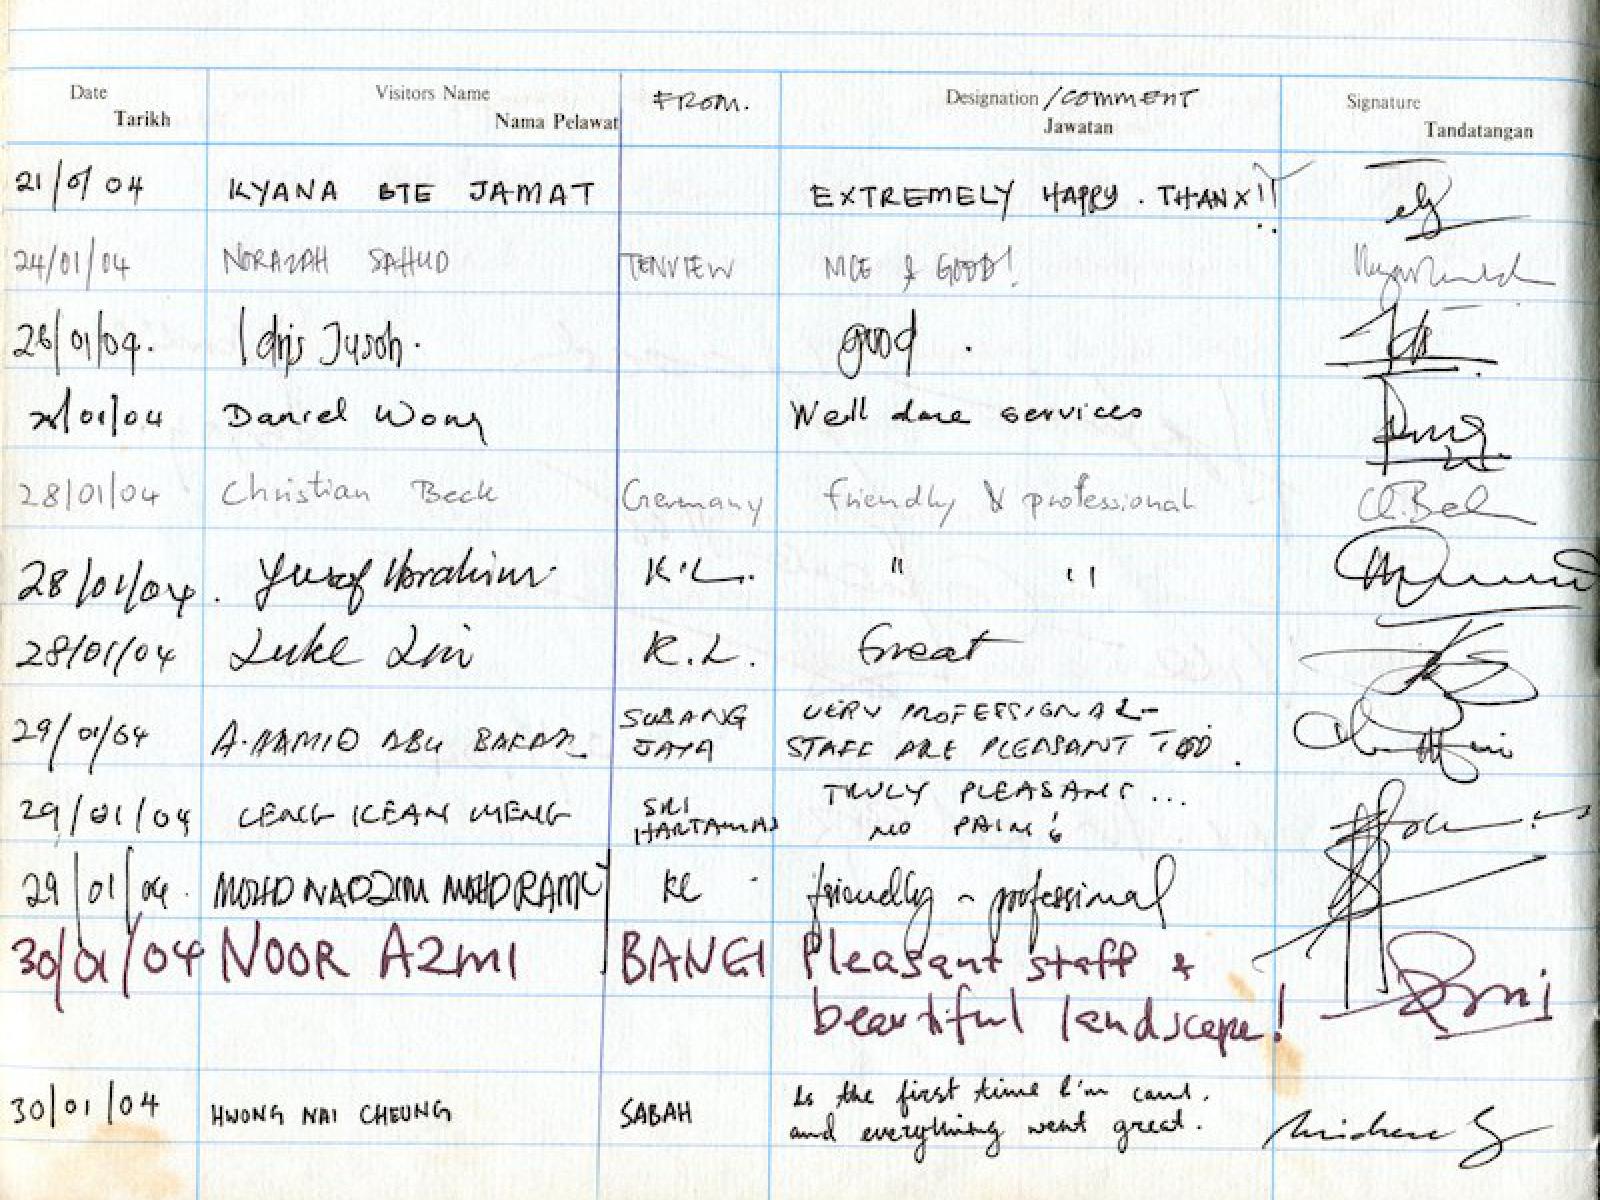 Date Visitors Name FROM. Designation /COMMENT Signature
Tarikh Nama Pelawat Jawatan Tandatangan
21/01/04 KYANA BTE JAMAT EXTREMELY HAPPY. THANX!!
24/01/04 NORAZAH SAHUD TENVIEW NICE & GOOD!
26/01/04. Idris Jusoh. good.
/01/04 Daniel Wong Well done services
28/01/04 Christian Beck Germany friendly & professional
28/01/04. Yusof Ibrahim K.L. " "
28/01/04 Luke Lim K.L. Great
29/01/04 A. HAMID ABU BAKAR SUBANG JAYA VERY PROFESSIONAL
STAFF ARE PLEASANT TOO.
29/01/04 LENG KEAN MENG SRI HARTAMAS TRULY PLEASANT...
NO PAIN!
29/01/04. MOHD NADZIM MOHD RAMLY KL friendly ~ professional
30/01/04 NOOR AZMI BANGI Pleasant staff &
beautiful landscape!
30/01/04 HWONG NAI CHEUNG SABAH Is the first time I'm
and everything went great.